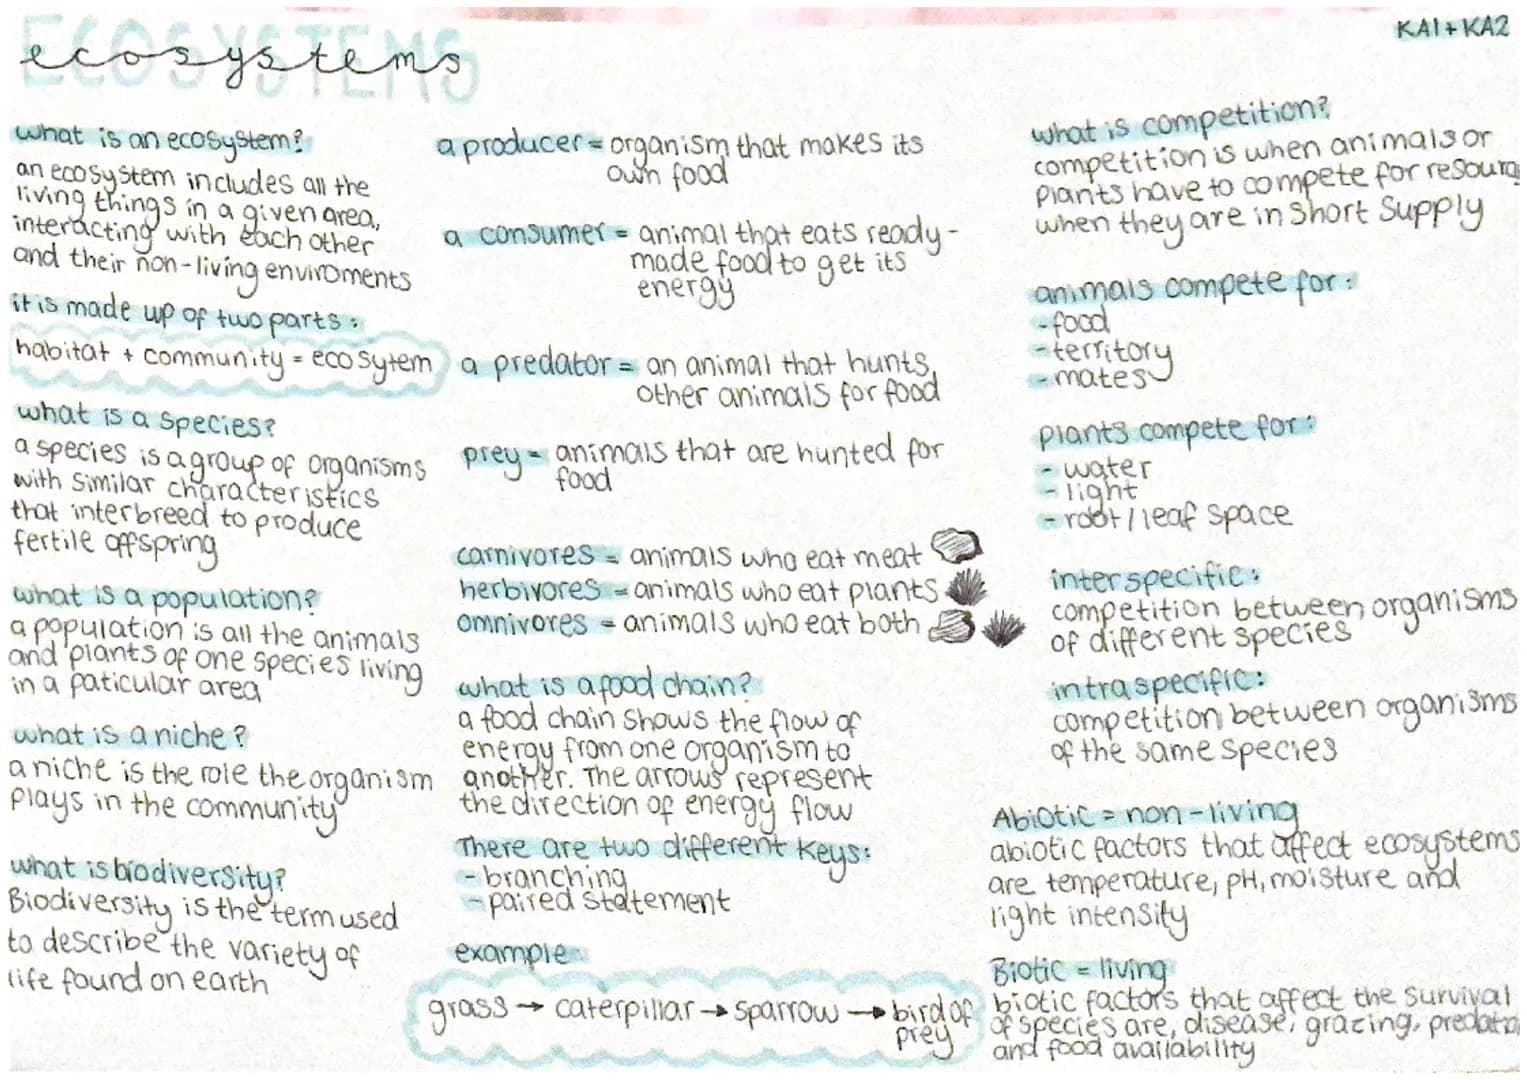 ECOSYSTEMS
ecosystems
KA1 + KA2
what is an ecosystem?
an ecosystem includes all the
living things in a given area,
interacting with each other
and their non-living enviroments
it is made up of two parts:
habitat + community = eco sytem
what is a species?
a species is a group of organisms
with similar characteristics
that interbreed to produce
fertile offspring
what is a population?
a population is all the animals
and plants of one species living
in a paticular area
what is a niche?
a niche is the role the organism
plays in the community
what is biodiversity?
Biodiversity is the term used
to describe the variety of
life found on earth
a producer = organism that makes its
own food
a consumer = animal that eats ready-
made food to get its
energy
a predator = an animal that hunts
other animals for food
prey = animals that are hunted for
food
carnivores = animals who eat meat
herbivores = animals who eat plants
omnivores = animals who eat both
what is a food chain?
a food chain shows the flow of
energy from one organism to
another. The arrows represent
the direction of energy flow
There are two different keys:
- branching
- paired statement
example:
grass → caterpillar → sparrow → bird of
prey
what is competition?
competition is when animals or
plants have to compete for
when they are in short supply
animals compete for:
- food
- territory
- mates
plants compete for:
- water
- light
- root / leaf space
interspecific:
competition between organisms
of different species
intraspecific:
competition between organisms
of the same species
Abiotic = non-living
abiotic factors that affect ecosystems
are temperature, pH, moisture and
light intensity
Biotic = living
biotic factors that affect the survival
of species are, disease, grazing,
and food availability